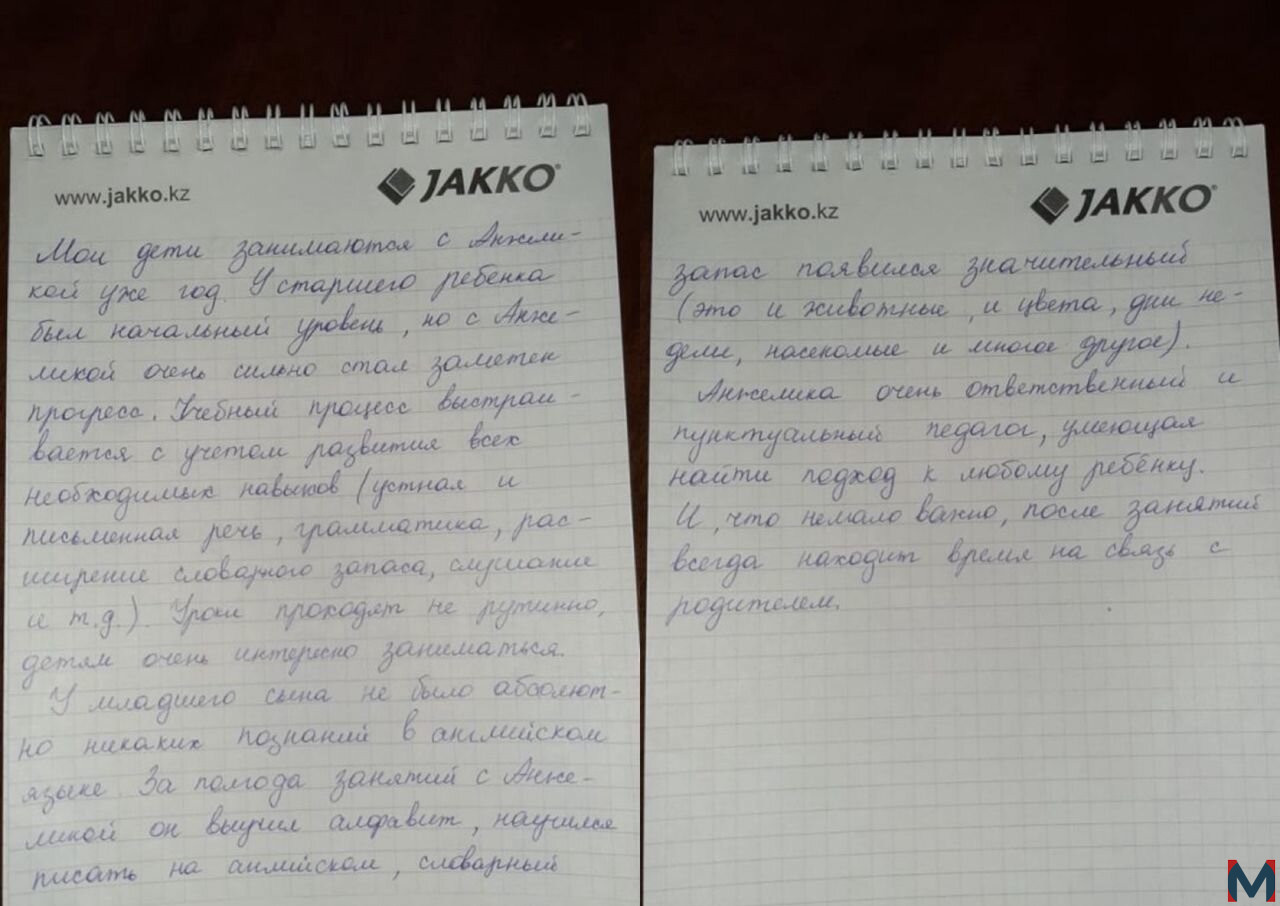 www.jakko.kz
JAKKO®
Мои дети занимаются с Анжели-
кой уже год. У старшего ребенка
был начальный уровень, но с Анже-
ликой очень сильно стал заметен
прогресс. Учебный процесс выстраи-
вается с учетом развития всех
необходимых навыков (устная и
письменная речь, грамматика, рас-
ширение словарного запаса, слушание
и т.д.). Уроки проходят не рутинно,
детям очень интересно заниматься.
У младшего сына не было абсолют-
но никаких познаний в английском
языке. За полгода занятий с Анже-
ликой он выучил алфавит, научился
писать на английском, словарный
www.jakko.kz
JAKKO®
запас появился значительный
(это и животные, и цвета, дни не-
дели, насекомые и многое другое).
Анжелика очень ответственный и
пунктуальный педагог, умеющая
найти подход к любому ребёнку.
И, что немало важно, после занятий
всегда находит время на связь с
родителем.
M